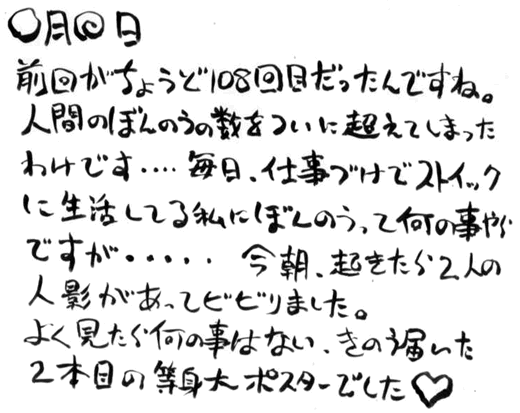 ○月◎日
前回がちょうど108回目だったんですね。
人間のぼんのうの数をついに超えてしまった
わけです‥‥毎日、仕事づけでストイック
に生活してる私にぼんのうって何の事やら
ですが・・・・・今朝、起きたら2人の
人影があってビビりました。
よく見たら何の事はない、きのう届いた
2本目の等身大ポスターでした♡